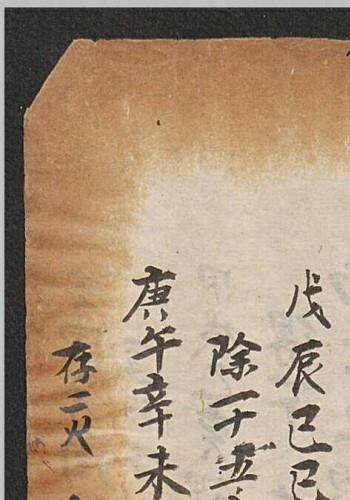 戊辰己巳
除一十五
庚午辛未
存二火